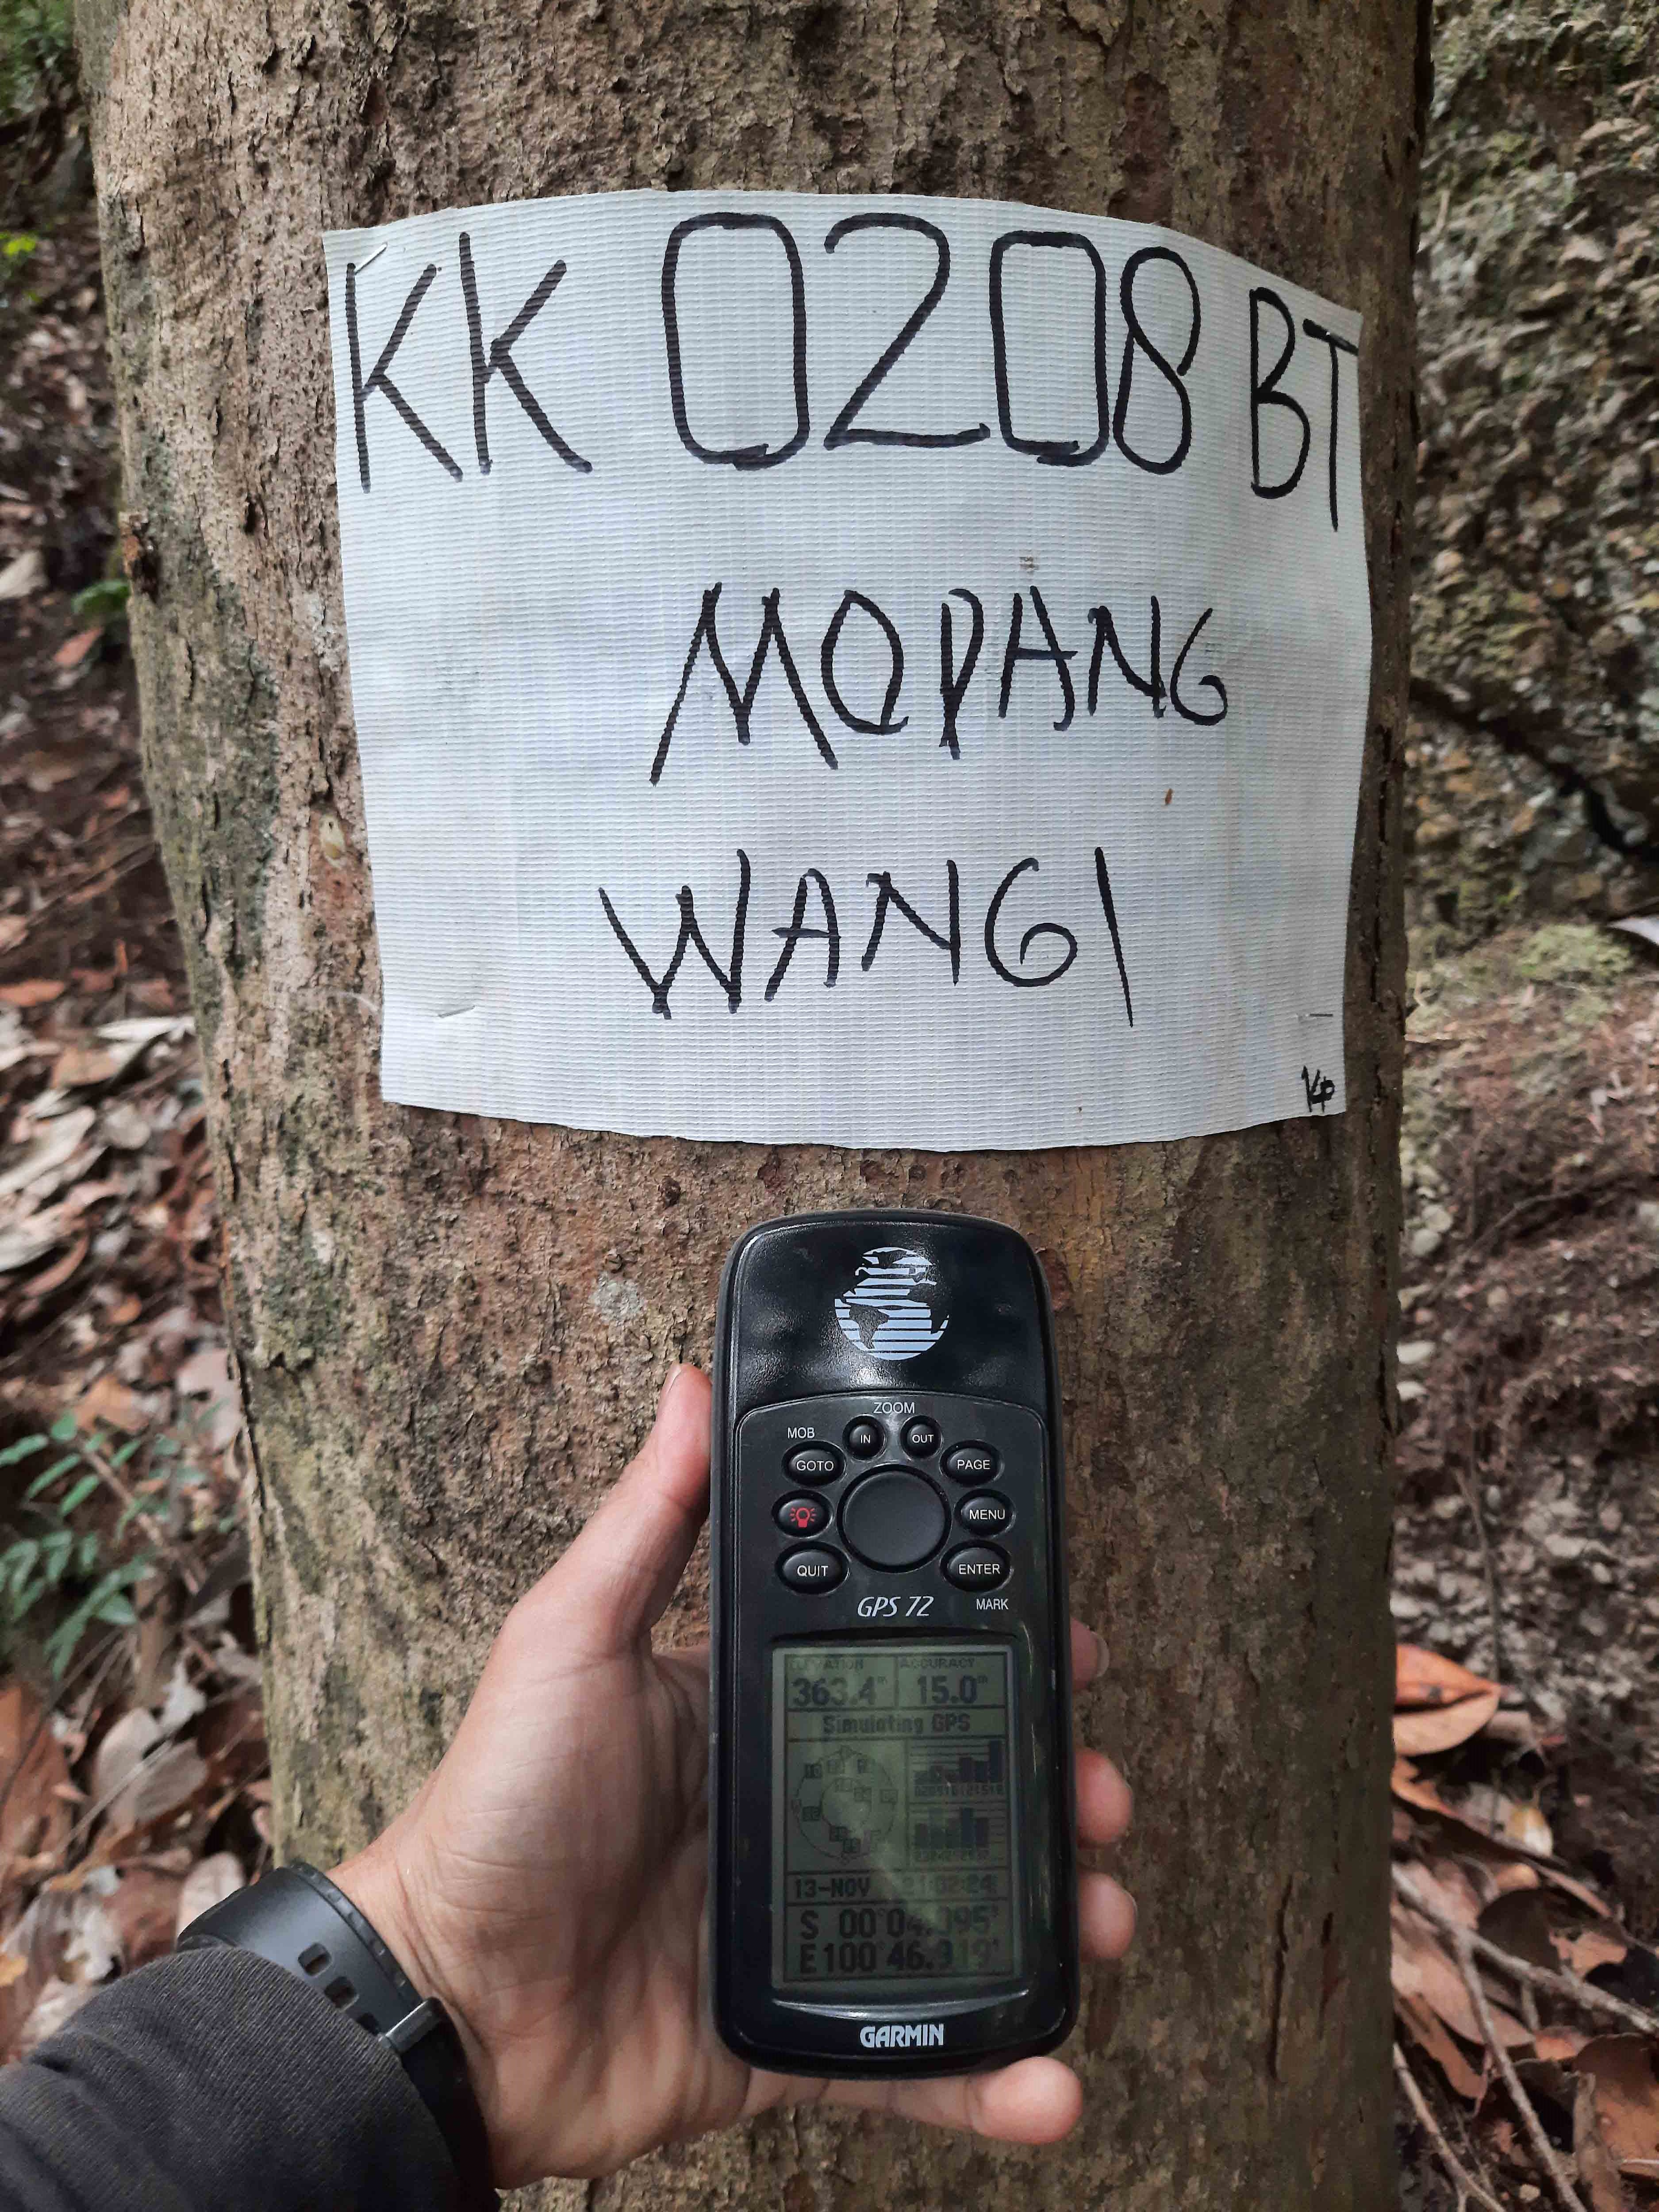 KK 0208 BT
MOPANG
WANGI
ZOOM
MOB IN OUT
GOTO PAGE
MENU
QUIT ENTER
GPS 72 MARK
ELEVATION ACCURACY
363.4m 15.0m
Simulating GPS
13-NOV
S 00°04.
E 100°46.919'
GARMIN